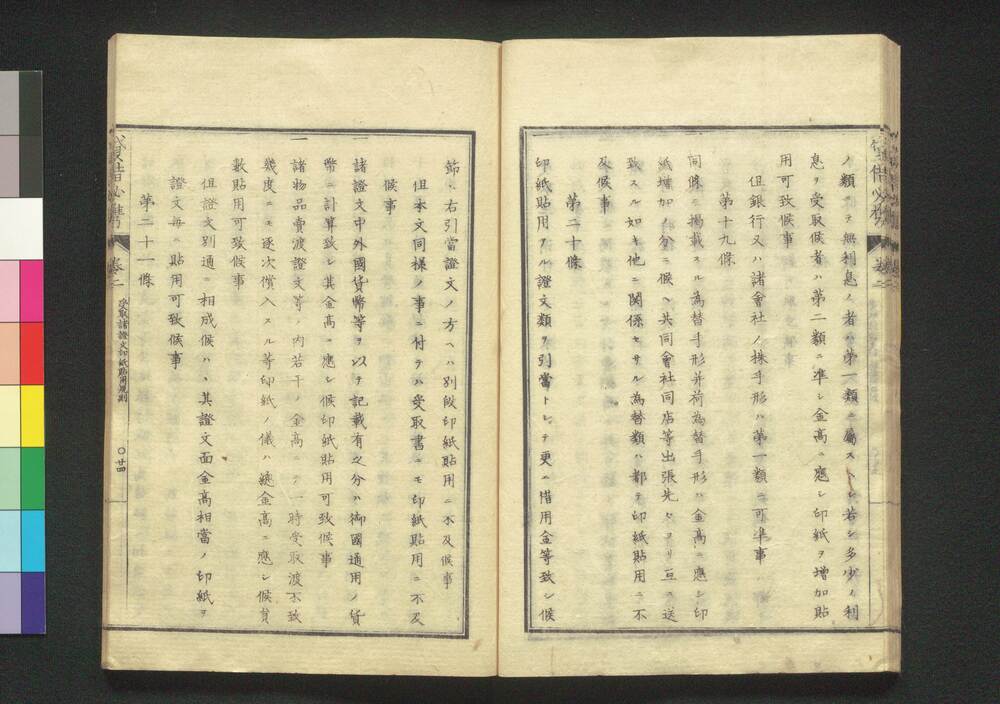 ノ類ニテ無利息ノ者ハ第一類ニ屬ストレ若シ多少ノ利
息ヲ受取候者ハ第二類ニ準シ金高ニ應シ印紙ヲ増加貼
用可致候事
但銀行又ハ諸會社ノ株手形ハ第一類ニ可準事
第十九條
同條ニ掲載スル為替手形并荷為替手形ハ金高ニ應シ印
紙増加ノ分ニ候ヘ共同會社同店等出張先ヨリ互ニ送
致スル如キ他ニ関係セサル為替類ハ都テ印紙貼用ニ不
及候事
第二十條
印紙貼用シタル證文類ヲ引當トシテ更ニ借用金等致シ候
節ハ右引當證文ノ方ヘハ別段印紙貼用ニ不及候事
但本文同様ノ事ニ付テハ受取書ニモ印紙貼用ニ不及
候事
一諸證文中外國貨幣等ヲ以テ記載有之分ハ御國通用ノ貨
幣ニ計算致シ其金高ニ應シ候印紙貼用可致候事
一諸物品賣渡證文等ノ内若干ノ金高ニテ一時受取渡不致
幾度ニモ逐次償入スル等印紙ノ儀ハ總金高ニ應シ候員
數貼用可致候事
但證文別通ニ相成候ハヽ其證文面金高相當ノ印紙ヲ
證文毎ニ貼用可致候事
第二十一條
貸借必携
巻二
受取諸證文印紙貼用規則
〇廿四